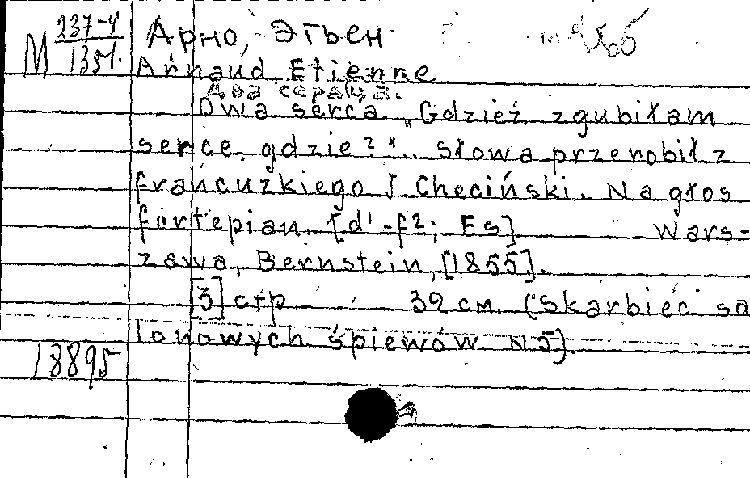 М 237-4 Арно, Этьен
1351.
Arnaud Etienne
Два сердца.
Dwa serca „Gdzieź zgubiłam
serce, gdzie?"... słowa przerobił z
francuzkiego J Checiński. Na głos
fortepian. [d'-f²; Es] Wars-
zawa, Bernstein, [1855].
[3] стр 32 см. (Skarbiec sa
lonowych śpiewów N5).
18895